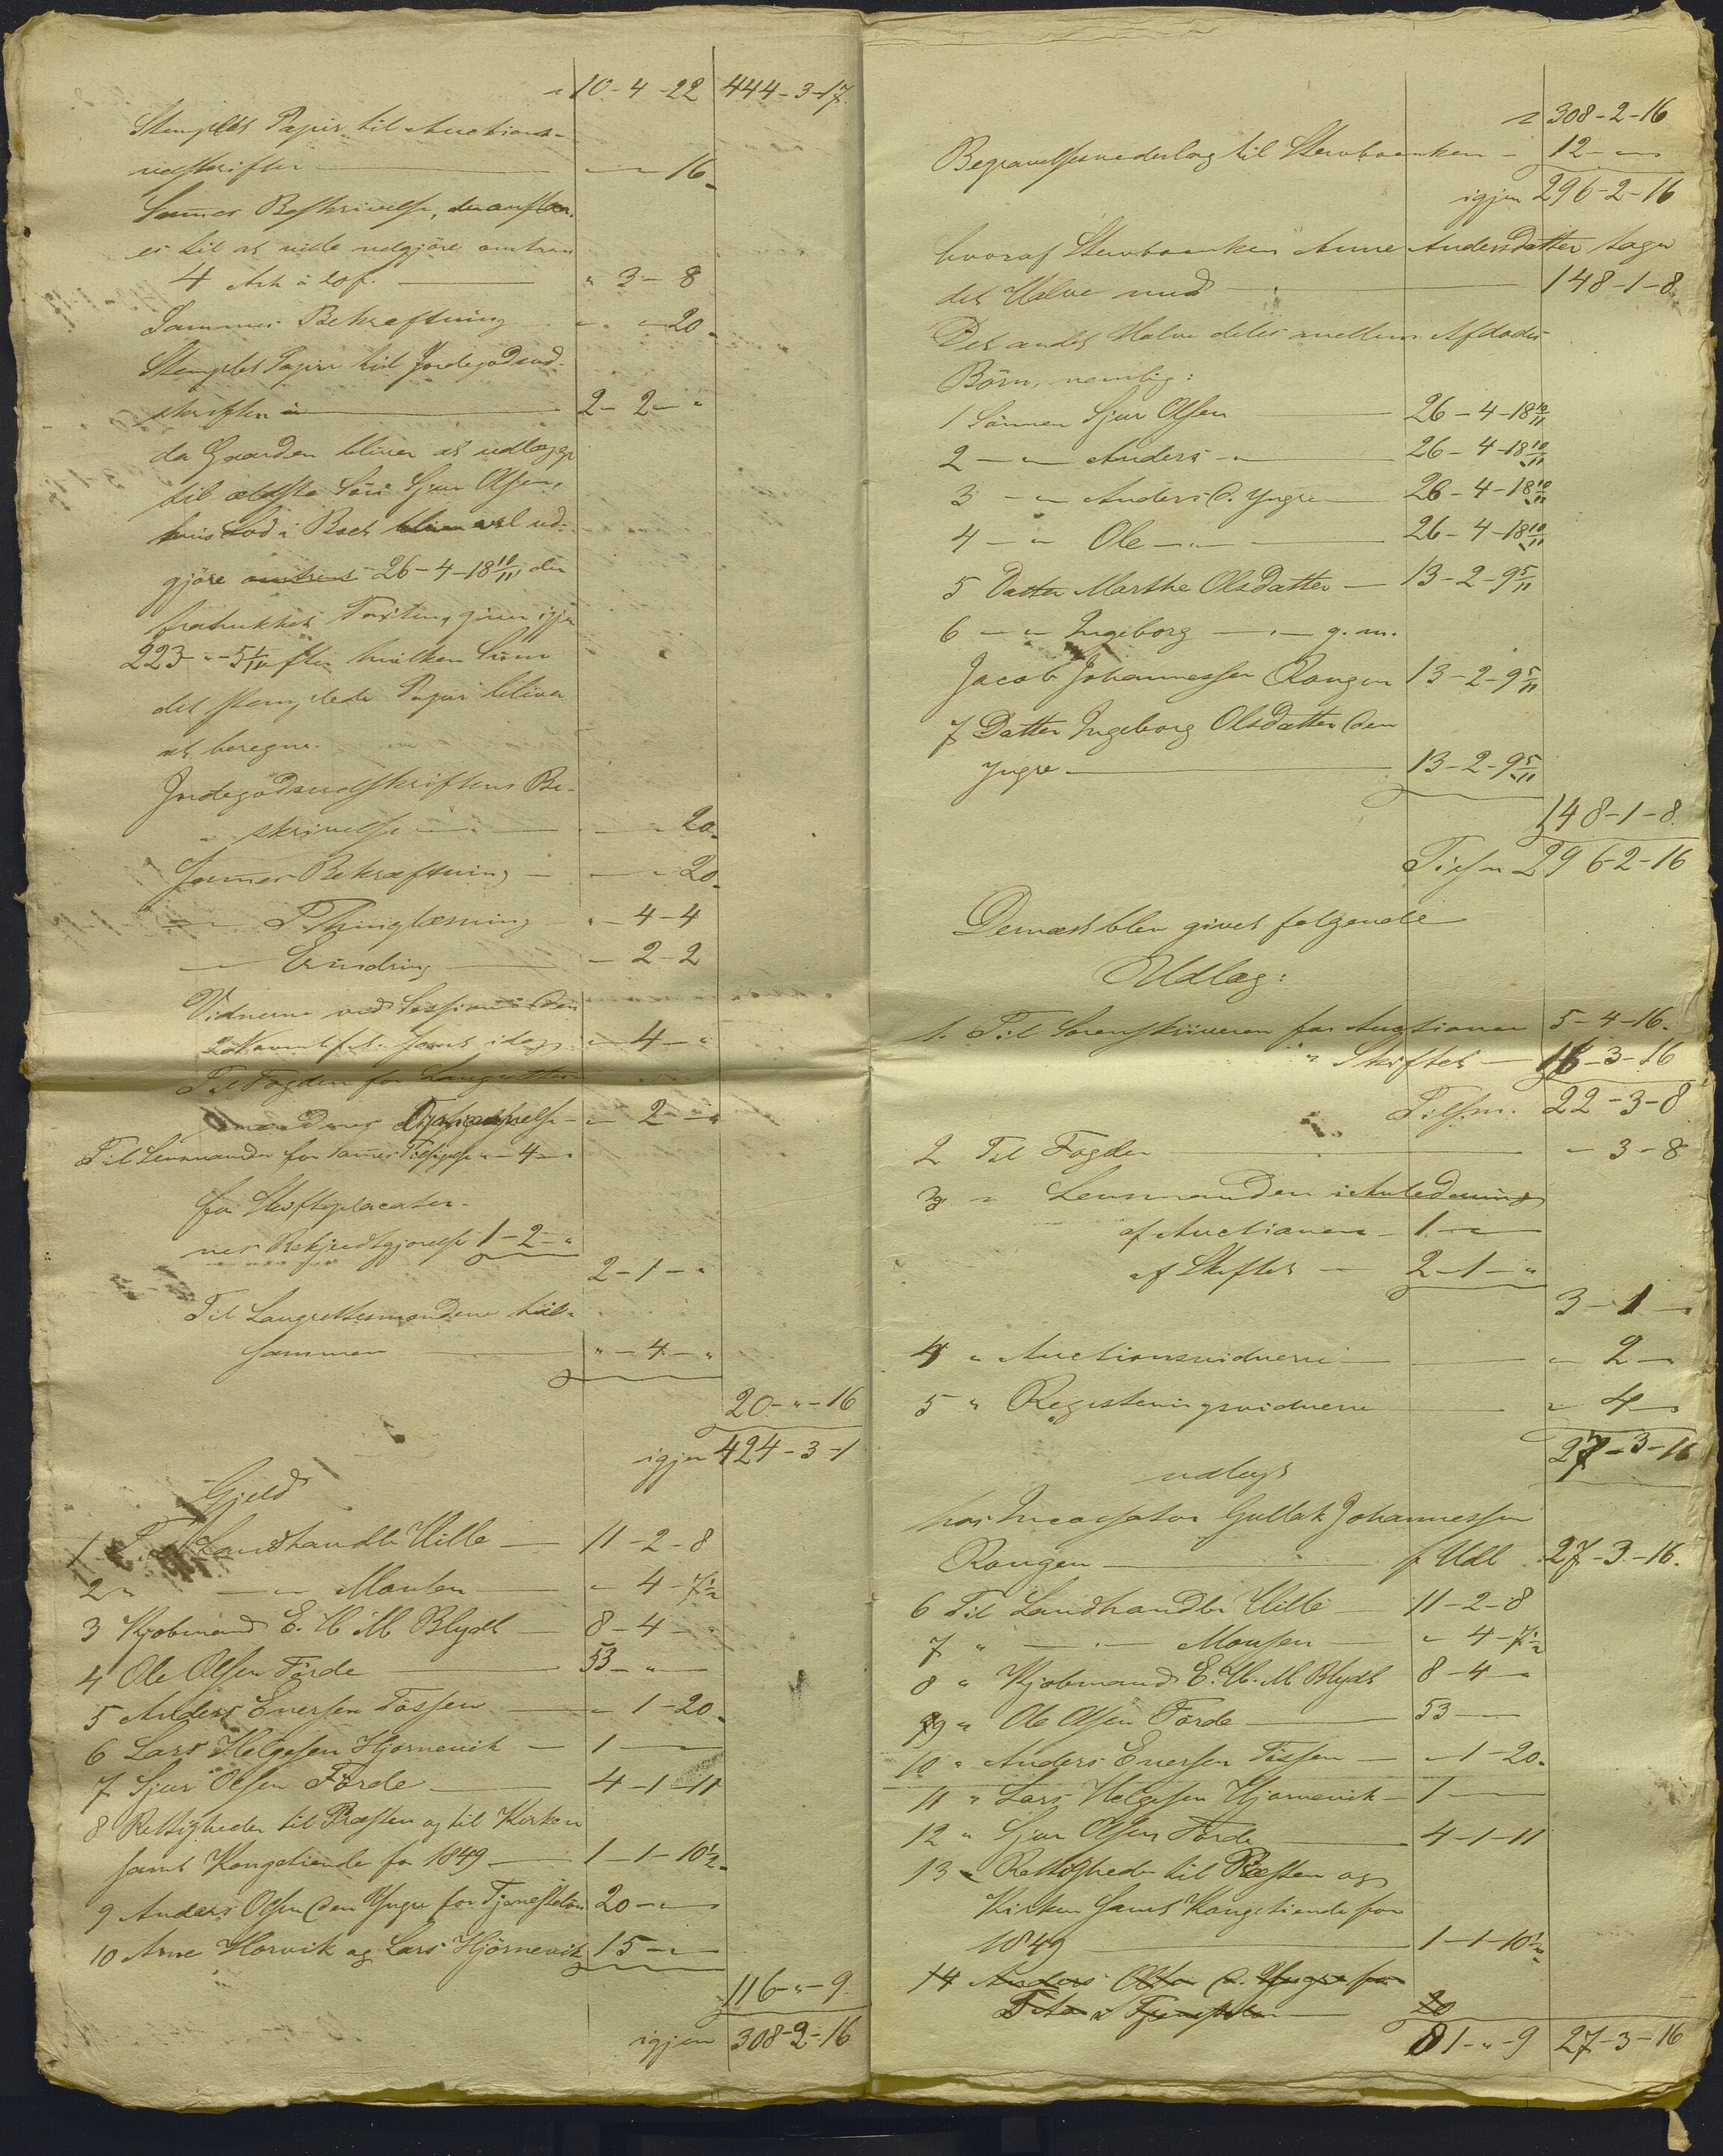 " 10-4-22 444-3-17.
Stemplet Papir til Auctions-
udskrifter — " — 16
Sammes Beskrivelse, der ansees
ei til at ville udgjöre omtrent
4 Ark à 20 ſ. — " 3-8
Sammes Bekræftning — " — 20
Stemplet Papir til Jordegodsud-
skriften — 2-2-"
da Gaarden bliver at udlægge
til ældste Sön Sjur Olsen,
hvis Lod i Boet vil ud-
gjöre omtrent 26-4-18 10/11 der
fratrukket Taxten, giver igjen
223-"-5 1/11 efter hvilken Sum
det stemplede Papir bliver
at beregne.
Jordegodsudskriftens Be-
skrivelse — " — 20
Sammes Bekræftning — " — 20
— " — Thinglæsning " - 4-4
— " — Erindring — 2-2
Vidnerne ved Sessionen den
2 Novemb. f. A. samt idag " - 4 - "
Til Fogden for Laugrettes-
mændenes — " - 2 - "
Til Lensmanden for Sammes Tilsigelse " - 4 - "
for Skifteplacater-
nes Bekjendtgjörelse 1-2-"
2-1-"
Til Laugrettesmændene til-
sammen — " - 4 - "
20-"-16
igjen 424-3-1
Gjeld
1 Til Landhandler Wille — 11-2-8
2 " — " — Monsen — " - 4-7½
3 Kjöbmand E. W. M. Blydt — 8-4-"
4 Ole Olsen Förde — 53-"-
5 Anders Enersen Tössen — " - 1-20
6 Lars Helgesen Hjörnevik — 1 —
7 Sjur Olsen Förde — 4-1-11
8 Rettigheder til Præsten og til Kirken
samt Kongetiende for 1849 — 1-1-10½
9 Anders Olsen den Yngre for Tjenestelön 20-"-
10 Arne Horvik og Lars Hjörnevik 15-"-
116-"-9.
igjen 308-2-16
" 308-2-16
Begravelsesvederlag til Stervboenken — 12-"-
igjen 296-2-16
hvoraf Stervboenken Anne Andersdatter tager
det Halve med — 148-1-8
Det andet Halve deles mellem Afdödes
Börn, nemlig:
1 Sönnen Sjur Olsen — 26-4-18 10/11
2 — " — Anders — " — 26-4-18 10/11
3 — " — Anders d. Yngre — 26-4-18 10/11
4 — " — Ole — " — 26-4-18 10/11
5 Datter Marthe Olsdatter — 13-2-9 5/11
6 — " — Ingeborg — " — g. m.
Jacob Johannessen Rongen 13-2-9 5/11
7 Datter Ingeborg Olsdatter den
Yngre — 13-2-9 5/11
148-1-8.
Tilsm 296-2-16
Dernæst blev givet fölgende
Udlæg:
1. Til Sorenskriveren for Auctionen 5-4-16.
" Skiftet — 16-3-16
Tilsm. 22-3-8
2 Til Fogden — " - 3-8
3 " Lensmanden i Anledning
af Auctionen — 1 — " —
af Skiftet — 2-1-"
3-1 —
4 " Auctionsvidnerne — " 2 —
5 " Registeringsvidnerne — " 4 —
27-3-16
udlagt
hos Incassator Gullak Johannessen
Rongen — f Udl 27-3-16.
6 Til Landhandler Wille — 11-2-8
7 " — " — Monsen — " 4-7½
8 " Kjöbmand E. W. M. Blydt 8-4-"
9 " Ole Olsen Förde — 53 —
10 " Anders Enersen Tössen — " - 1-20
11 " Lars Helgesen Hjörnevik — 1 —
12 " Sjur Olsen Förde — 4-1-11
13 " Rettigheder til Præsten og
Kirken samt Kongetiende for
1849 — 1-1-10½
14 Anders Olsen d. Yngre for
Tjenestelön — 20
81-"-9 27-3-16